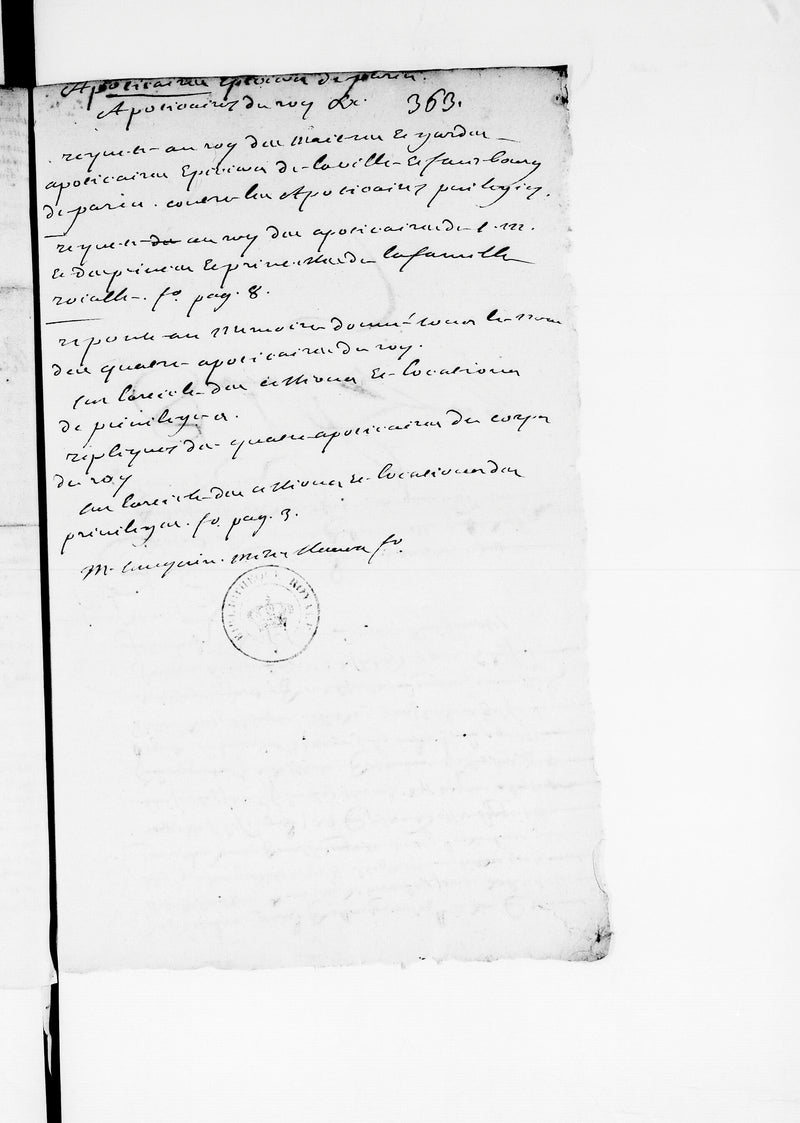 Apoticaires Epiciers de paris.
Apoticaires du roy &c. 363.
requete au roy des maitres et gardes
apoticaires Epiciers de la ville et fauxbourg
de paris. contre les Apoticaires privilegiez.
requete de au roy des apoticaires de s. m.
et des princes et princesses de la famille
roialle. fo. pag. 8.
reponse au memoire donné sous le nom
des quatre apoticaires du roy.
sur l'article des cessions et locations
de privileges.
repliques des quatre apoticaires du corps
du roy
sur l'article des cessions et locations des
privileges. fo. pag. 3.
M. fo.
BIBLIOTHEQUE ROYALE